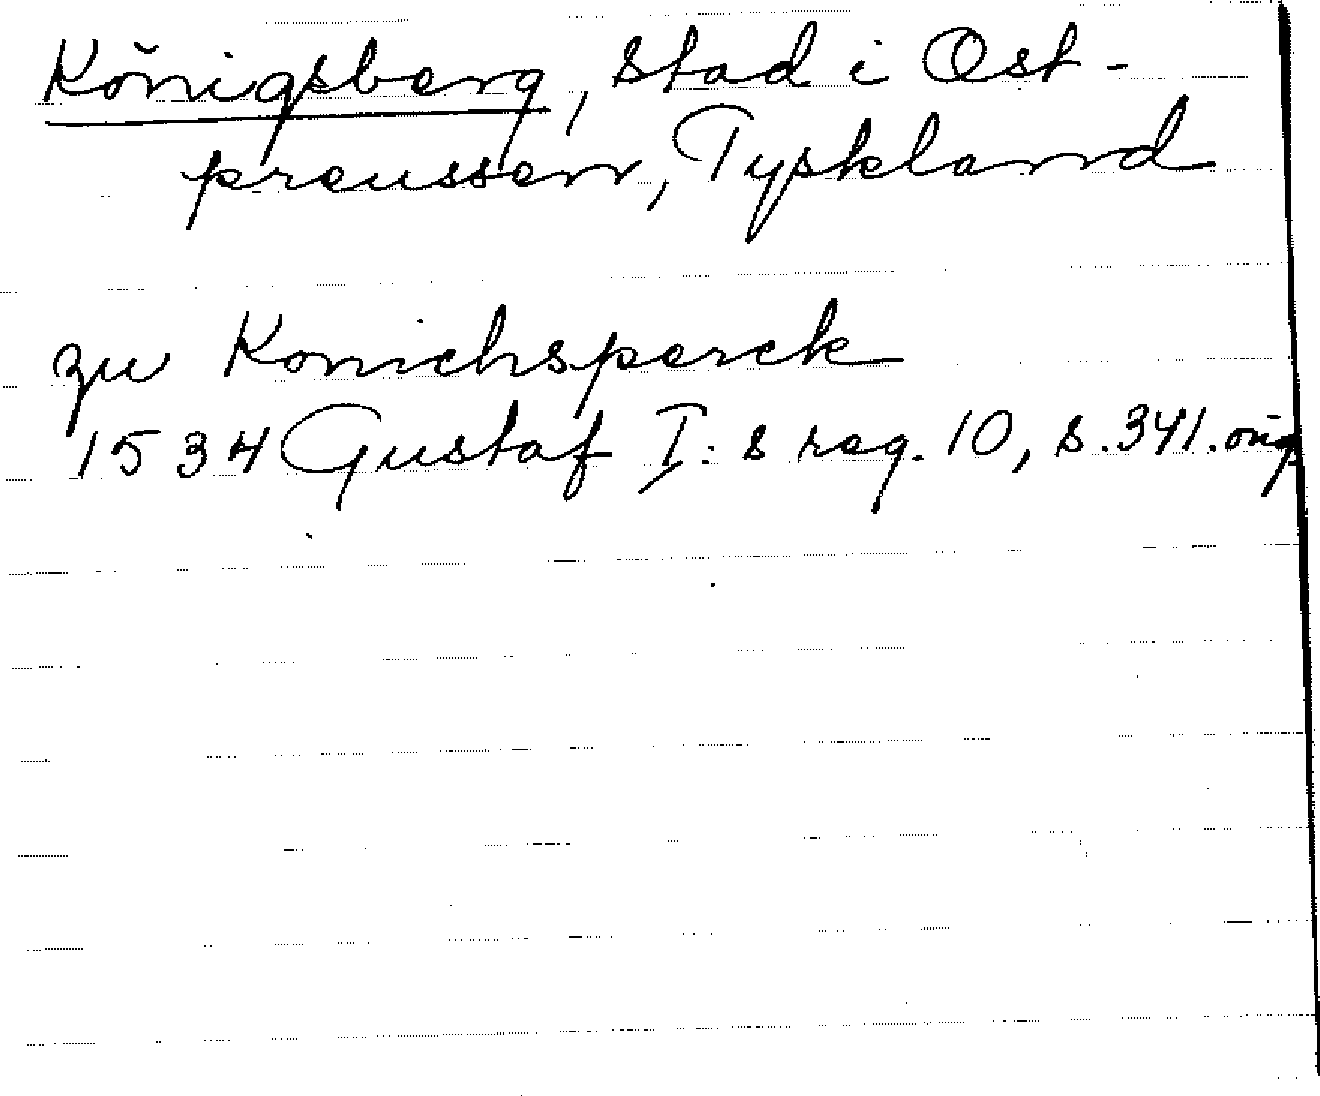 Königsberg, stad i Ost-
preussen, Tyskland
zu Konichsperck
1534 Gustaf I:s reg. 10, s. 341. orig